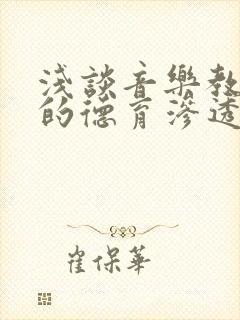 浅談音樂教
的德育滲透
崔保華